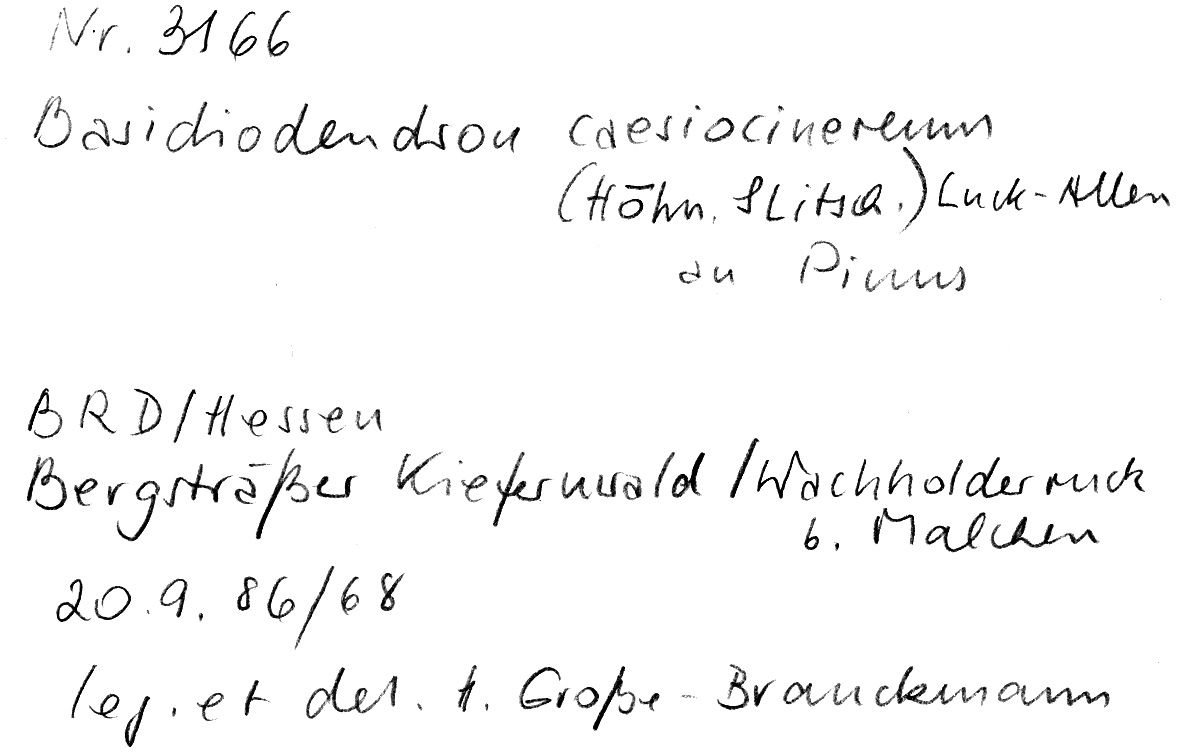 Nr. 3166
Basidiodendron caesiocinereum
(Höhn. & Litsch.) Luck-Allen
an Pinus
BRD/Hessen
Bergsträßer Kiefernwald / Wachholderruck
b. Malchen
20.9.86/68
leg. et det. H. Große-Brauckmann